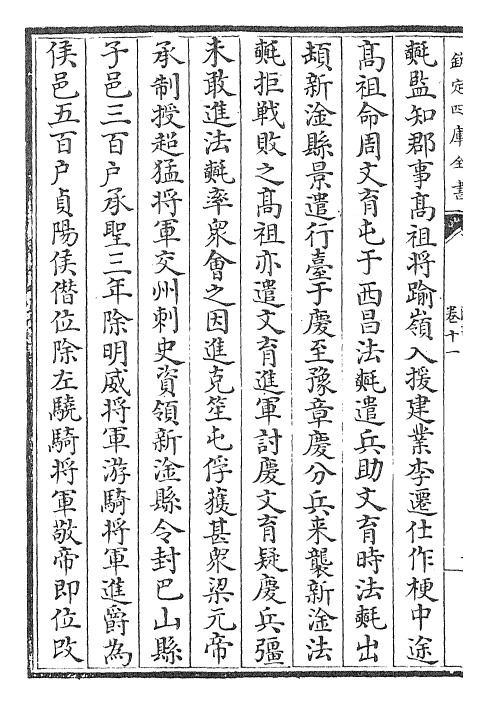 欽定四庫全書
卷十一
𣰰監知郡事髙祖將踰嶺入援建業李遷仕作梗中途
髙祖命周文育屯于西昌法𣰰遣兵助文育時法𣰰出
頓新淦縣景遣行臺于慶至豫章慶分兵来襲新淦法
𣰰拒戰敗之髙祖亦遣文育進軍討慶文育疑慶兵彊
未敢進法𣰰率衆會之因進克笙屯俘獲甚衆梁元帝
承制授超猛將軍交州刺史資領新淦縣令封巴山縣
子邑三百户承聖三年除明威將軍游騎將軍進爵為
侯邑五百户貞陽侯僭位除左驍騎將軍敬帝即位改